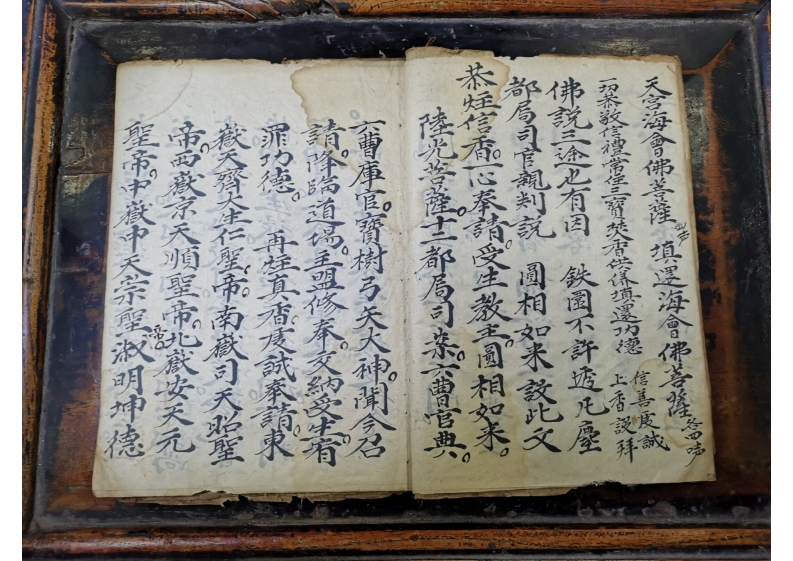 天宮海會佛菩薩 填還海會佛菩薩 各四声
一切恭敬信禮常住三寳焚香供養填還功德 信善虔誠 上香設拜
佛説三途也有因 鉄圍不許透凡塵
都局司官親判説 圓相如来設此文
恭炷信香。一心奉請。受生教主。圓相如来。
陸光菩薩。十二都局司案。六曹官典。
六曹庫官。寳樹弓矢大神。聞今召
請。降臨道場。主盟修奉。交納受生。宥
罪功德。 再炷真香。虔誠奉請。東
嶽天齊大生仁聖帝。南嶽司天昭聖
帝。西嶽京天順聖帝。北嶽安天元
聖帝。中嶽中天宗聖帝。淑明坤德